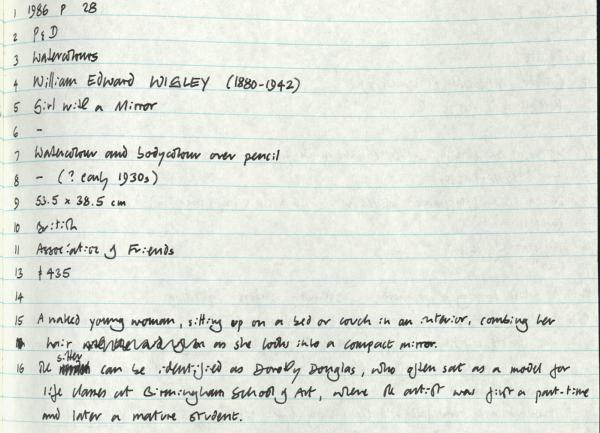 1 1986 P 28
2 P&D
3 Watercolours
4 William Edward WIGLEY (1880-1942)
5 Girl with a Mirror
6 -
7 Watercolour and bodycolour over pencil
8 - (? early 1930s)
9 53.5 x 38.5 cm
10 British
11 Association of Friends
13 £435
14
15 A naked young woman, sitting up on a bed or couch in an interior, combing her
hair as she looks into a compact mirror.
16 The sitter can be identified as Dorothy Douglas, who often sat as a model for
life classes at Birmingham School of Art, where the artist was first a part-time
and later a mature student.